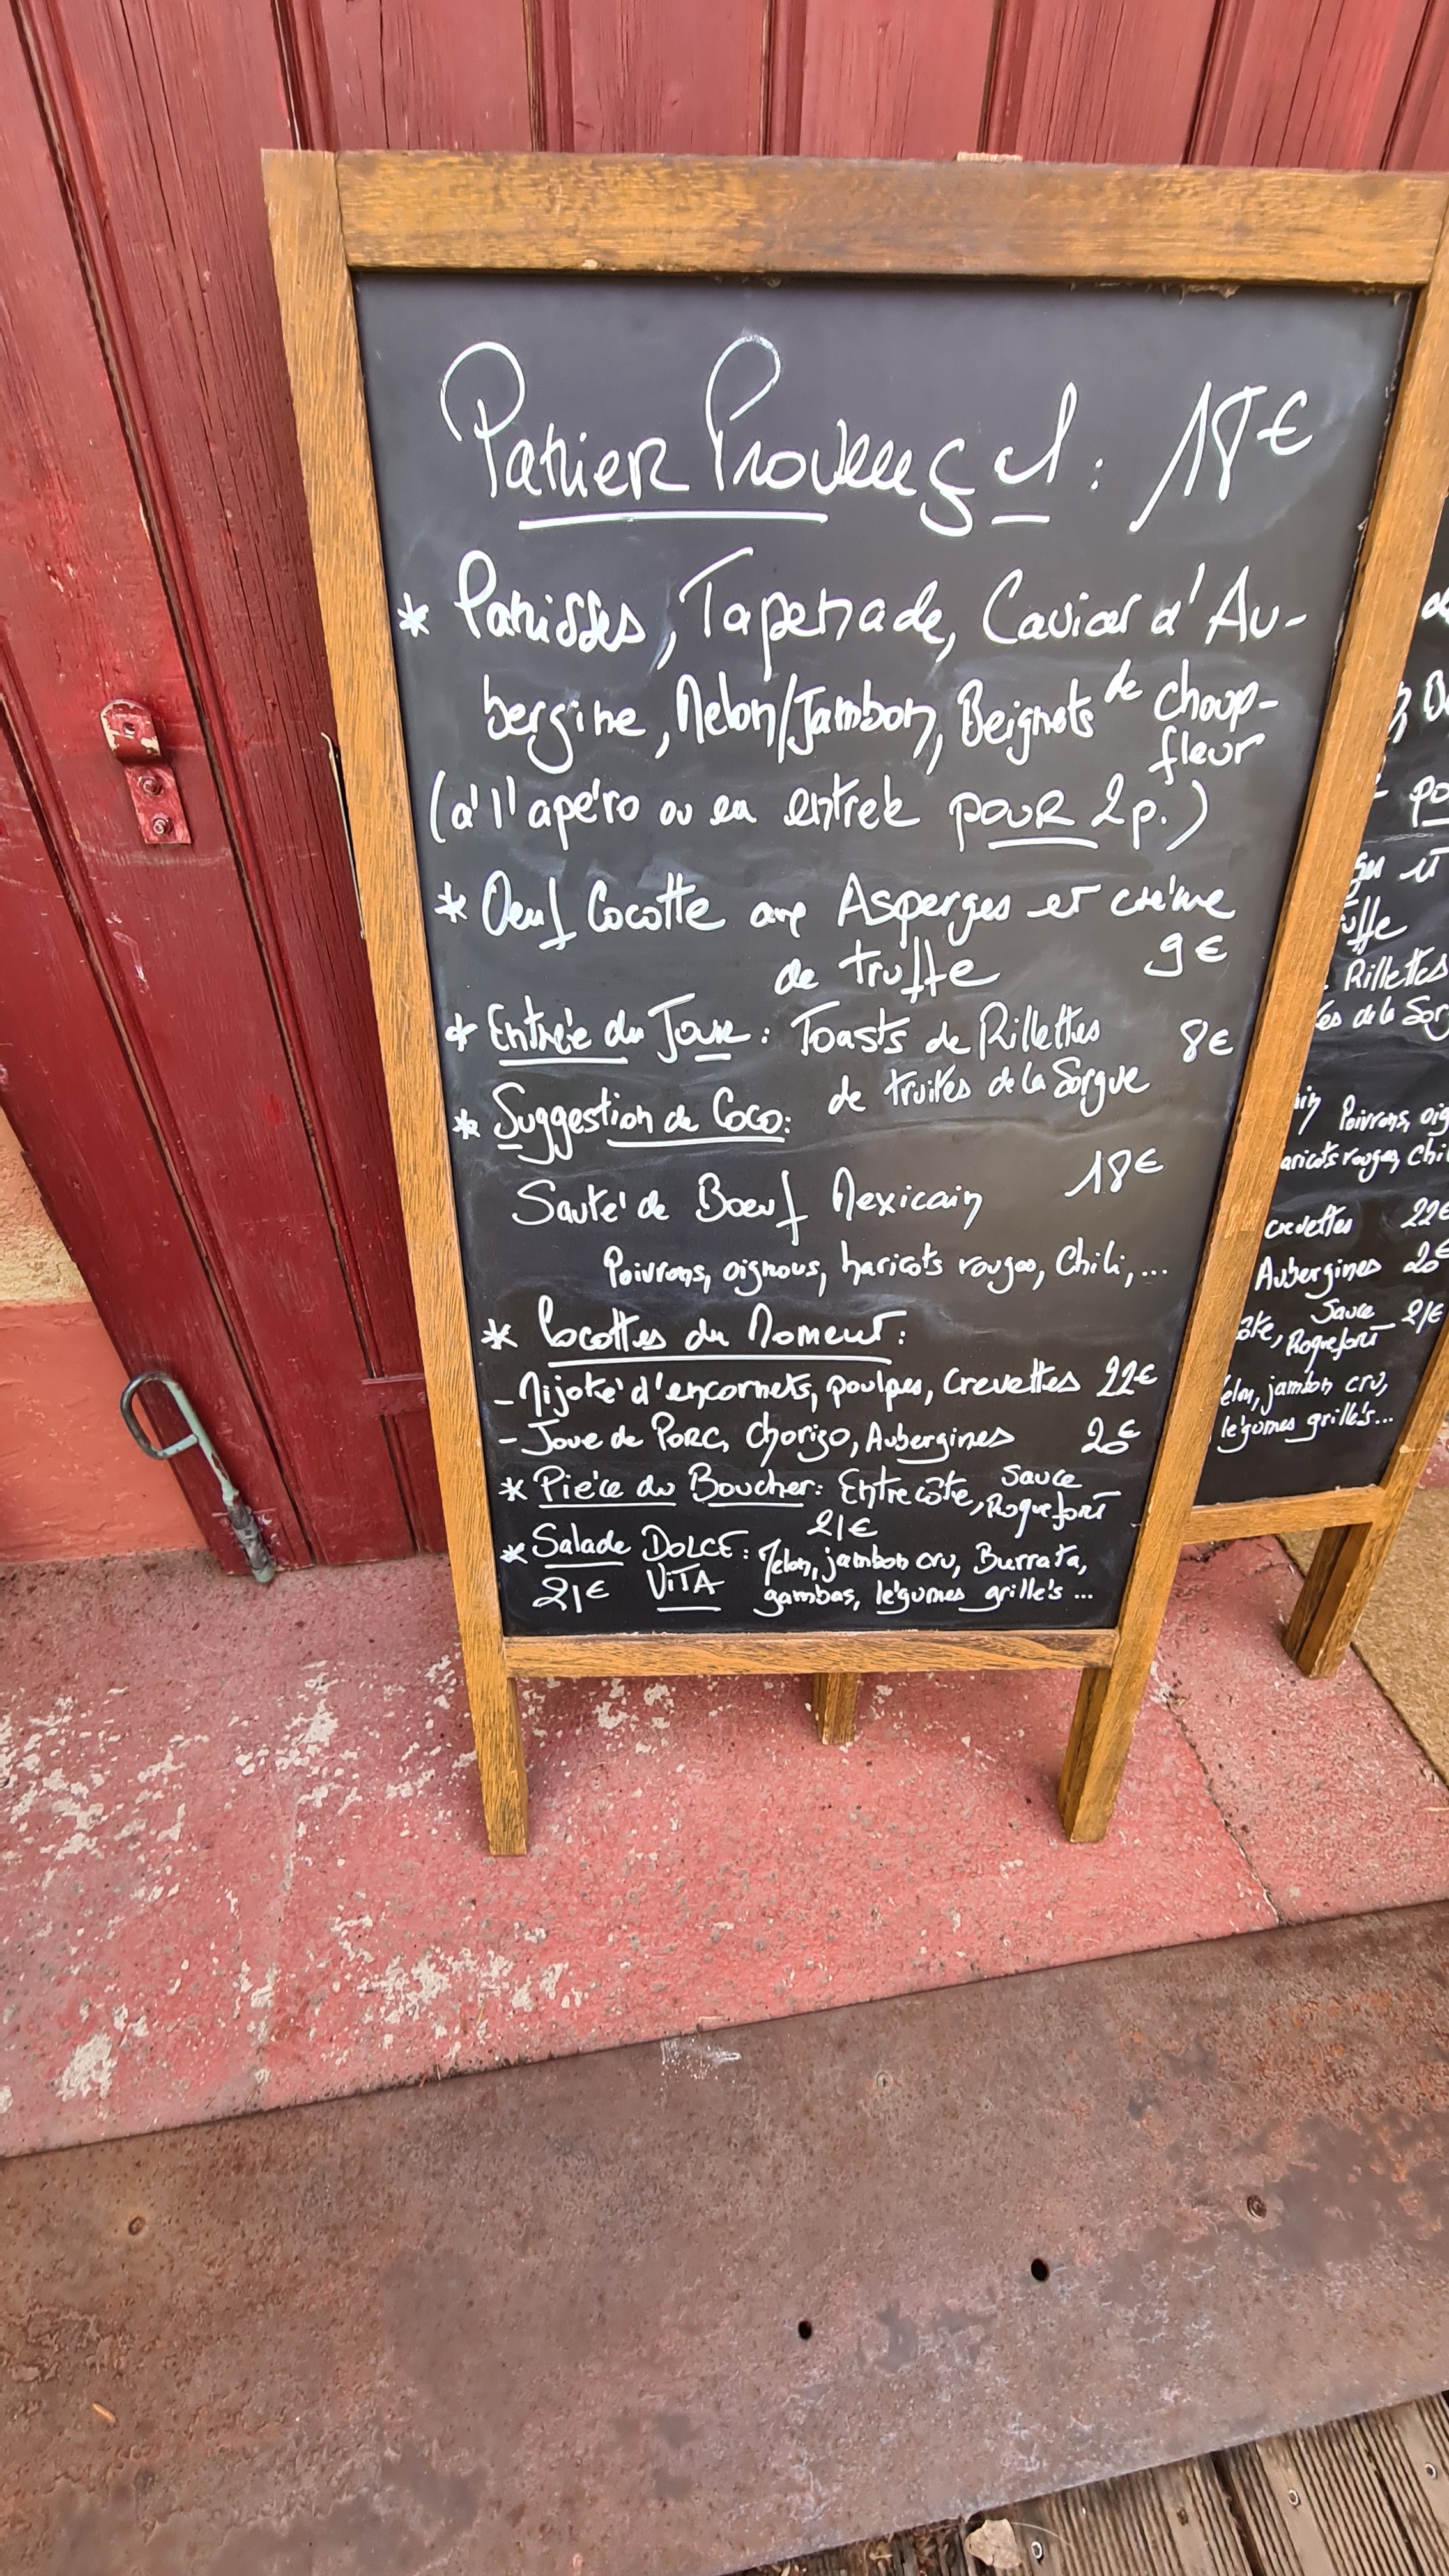 Panier Provençal : 18€
* Panisses, Tapenade, Caviar d'Au-
bergine, Melon/Jambon, Beignets de choux-
fleur
(à l'apéro ou en entrée pour 2p.)
* Oeuf Cocotte aux Asperges et crème
de truffe 9€
* Entrée du Jour : Toasts de Rillettes 8€
de truites de la Sorgue
* Suggestion de Coco:
Sauté de Boeuf Mexicain 18€
Poivrons, oignons, haricots rouges, Chili,...
* Cocottes du Moment:
- Mijoté d'encornets, poulpes, Crevettes 22€
- Joue de Porc, Chorizo, Aubergines 20€
* Pièce du Boucher: Entrecôte, Sauce
Roquefort
21€
* Salade DOLCE: Melon, jambon cru, Burrata,
21€ VITA gambas, légumes grillés ...
Rillettes
de la Sor
Poivrons, oig
aricots rouges, Chi
crevettes 22€
Aubergines 20€
Sauce
ôte, Roquefort 21€
elon, jambon cru,
légumes grillés...